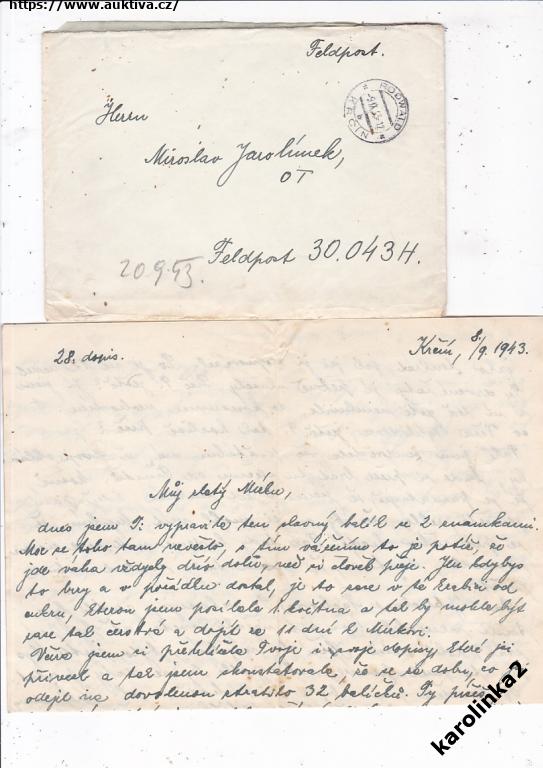 https://www.auktiva.cz/
Feldpost.
Herrn
Miroslav Jarolímek,
OT
Feldpost 30.043H.
20.9.43.
RODWALD
28. dopis.
Krčín, 8./9. 1943.
Můj zlatý Mirku,
dnes jsem Ti vypravila ten slavný balík se 2 známkami.
Moc se toho tam nevešlo, s tím vážením to je potíž, to
jde váha vždycky dřív dolů, než si člověk přeje. Jen kdybys
to brzy a v pořádku dostal, je to zase v té krabici od
cukru, kterou jsem posílala 1. května a tak by mohla být
zase tak čerstvá a dojít za 11 dní k Mirkovi.
Včera jsem si přehlížela Tvoje i svoje dopisy, které jsi
přivezl a tak jsem zkonstatovala, že se za dobu, co
odejel na dovolenou ztratilo 32 balíčků. Ty
karolinka2